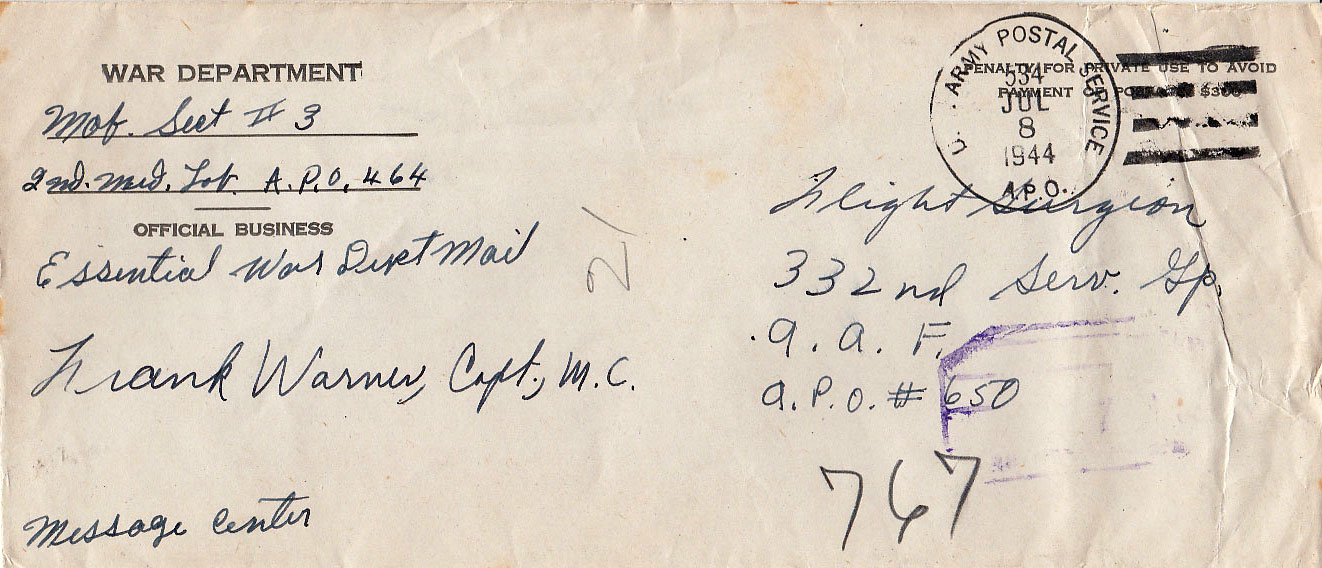 WAR DEPARTMENT
Mob. Sect # 3
2nd. Med. Lab. A.P.O. 464
OFFICIAL BUSINESS
Essential War Dept Mail
Frank Warner, Capt., M.C.
Message Center
21
U. . ARMY POSTAL SERVICE
534
JUL
8
1944
A.P.O.
PENALTY FOR PRIVATE USE TO AVOID
PAYMENT POSTAGE $300
Flight Surgeon
332nd Serv. Gp.
A. A. F.
A.P.O. # 650
767